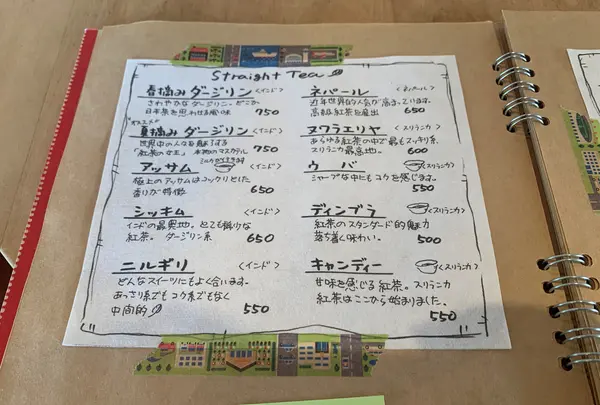 Straight Tea
春摘み ダージリン <インド>
さわやかなダージリン。どこか
日本茶を思わせる風味 750
オススメ
夏摘み ダージリン <インド>
世界中の人々を魅了する
「紅茶の女王」 本物のマスカテル 750
アッサム ミルクができます <インド>
極上のアッサムはコックリとした
香りが特徴 650
シッキム <インド>
インドの最奥地。とても稀りな
紅茶。ダージリン系 650
ニルギリ <インド>
どんなスイーツにもよく合います。
あっさり系でもコク系でもなく
中間的 550
ネパール <ネパール>
近年世界的人気が高まっています。
高級紅茶を産出 650
ヌワラエリヤ <スリランカ>
あらゆる紅茶の中で最もスッキリ系
スリランカ最高地。 600
ウバ <スリランカ>
シャープな中にもコクを感じます。
550
ディンブラ <スリランカ>
紅茶のスタンダード的魅力
落ち着く味わい。 500
キャンディー <スリランカ>
甘味を感じる紅茶。スリランカ
紅茶はここから始まりました。
550